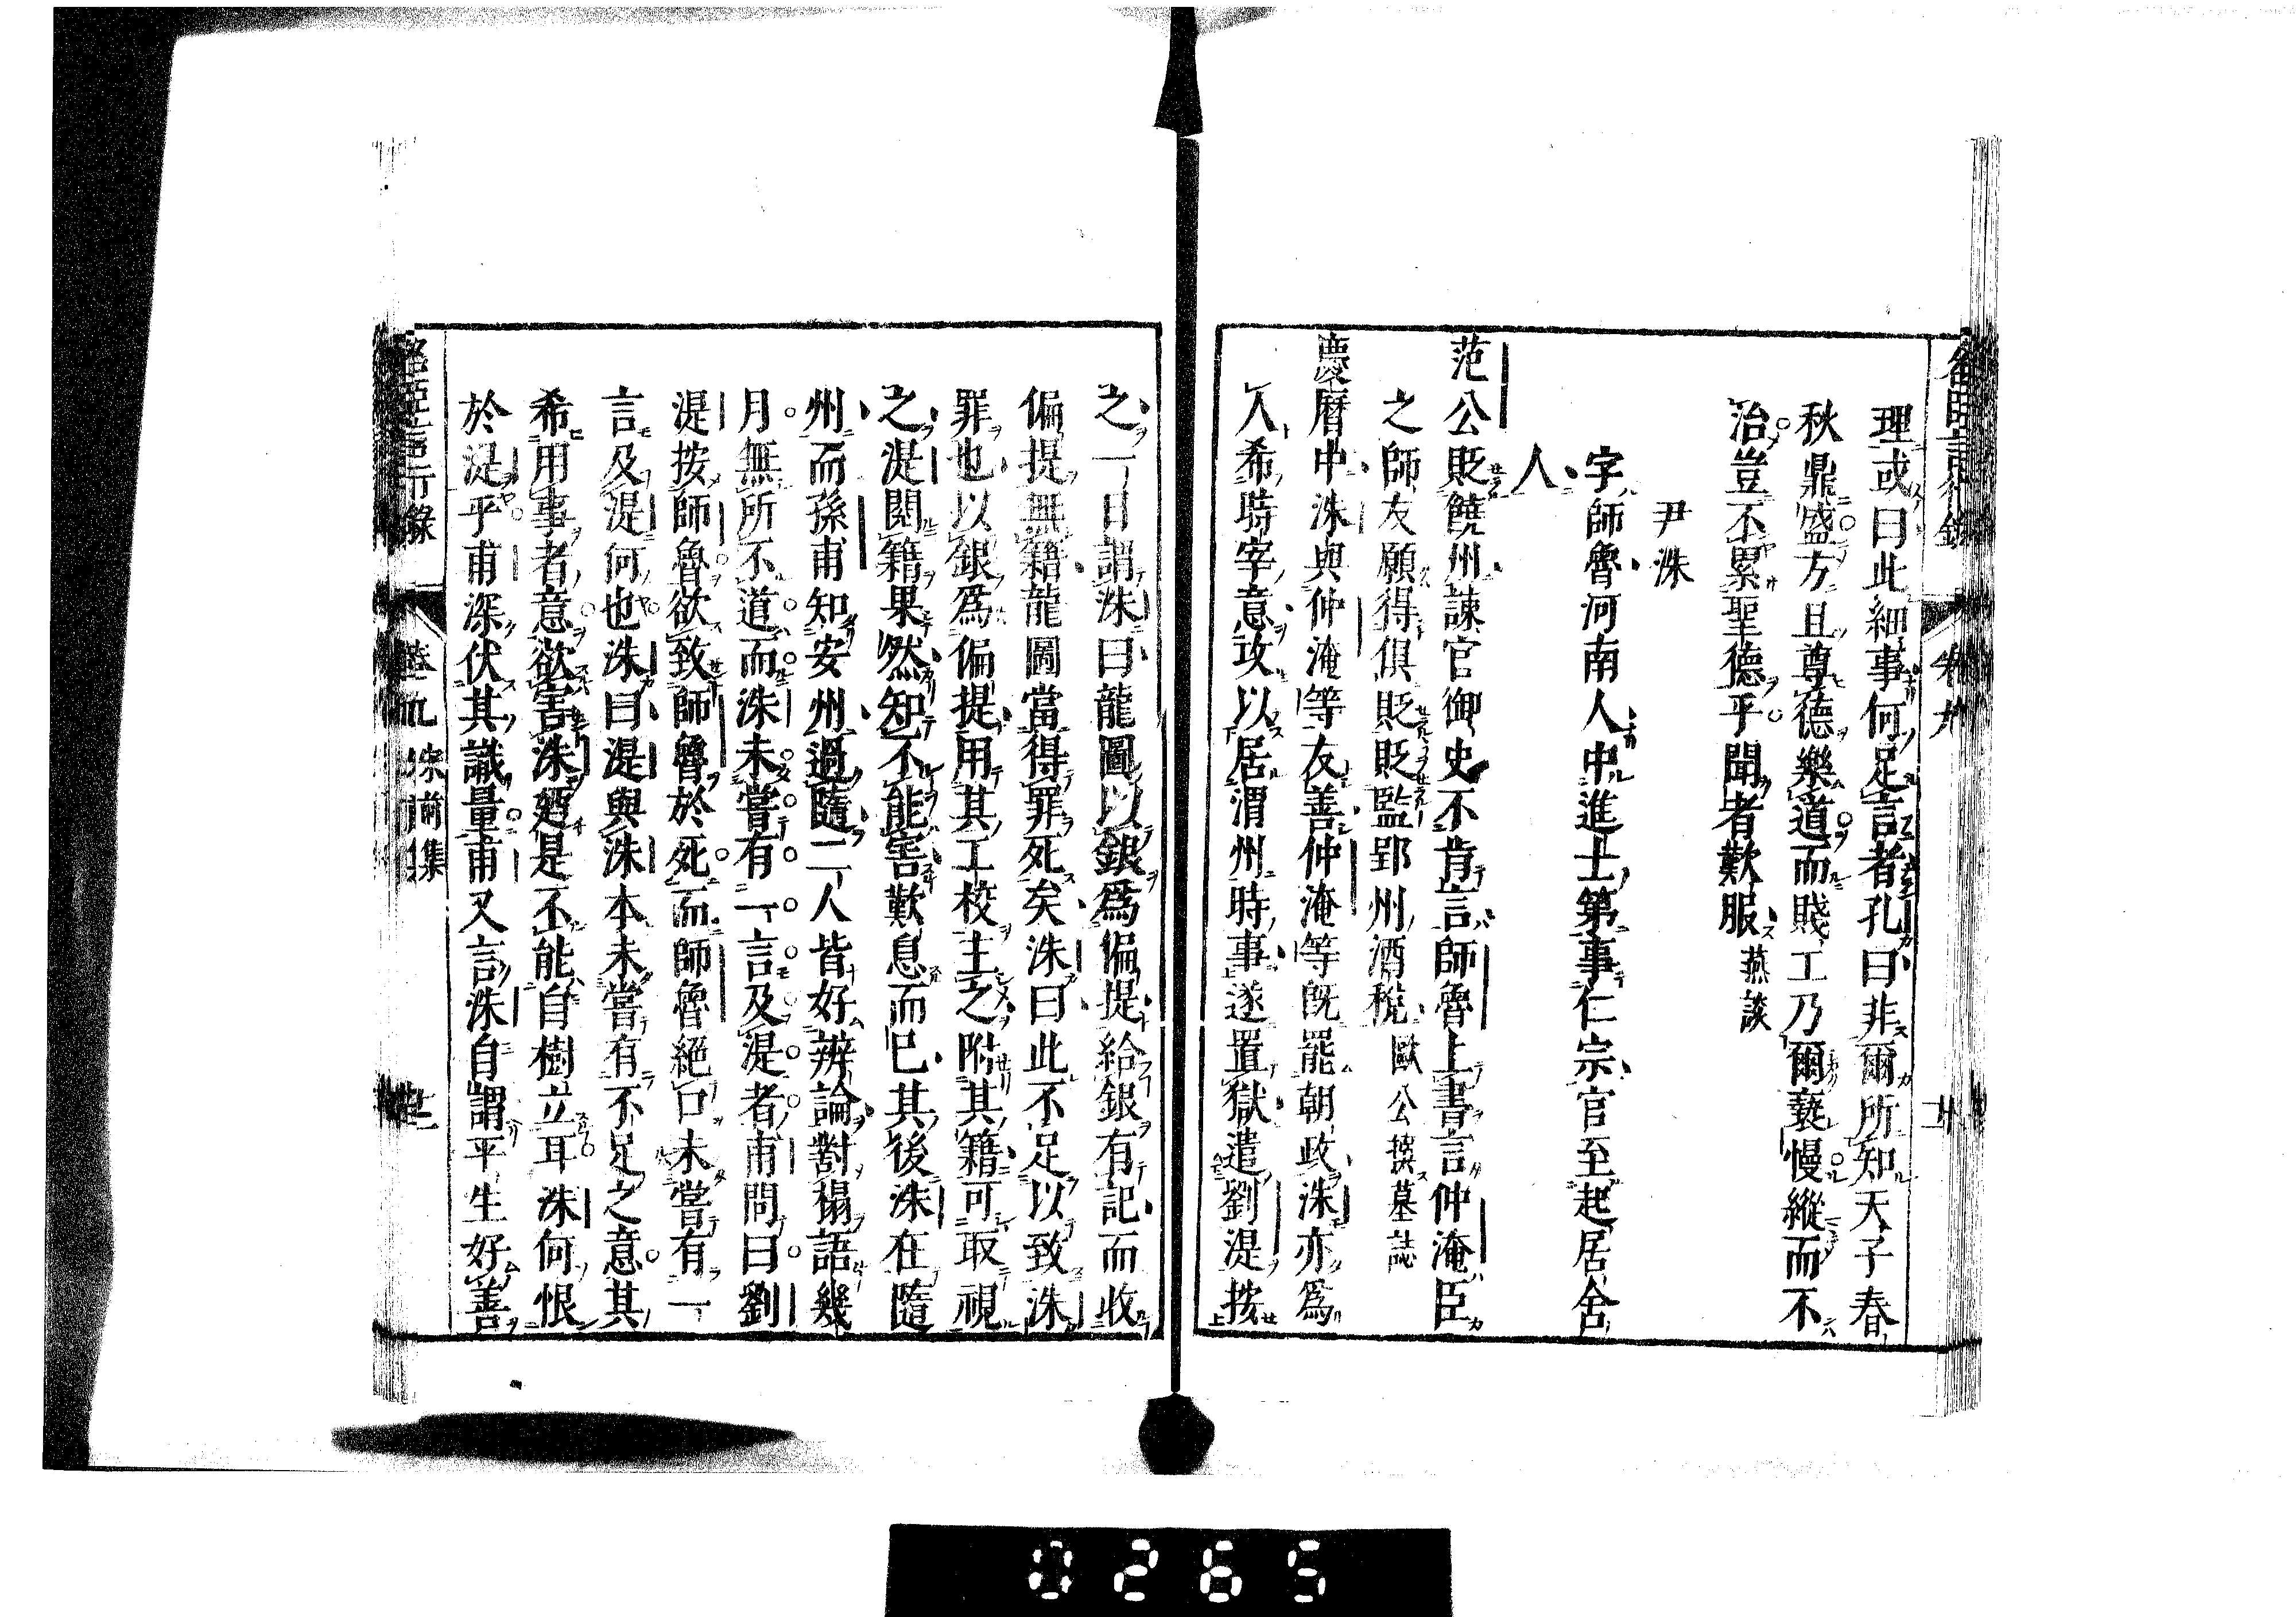 理或曰此細事何足言者孔曰非爾所知天子春
秋鼎盛方且尊德樂道而賤工乃爾褻慢縱而不
治豈不累聖德乎聞者歎服燕談
尹洙
字師魯河南人中進士第事仁宗官至起居舍
人
范公貶饒州諫官御史不肯言師魯上書言仲淹臣
之師友願得俱貶貶監郢州酒稅歐公撰墓誌
慶曆中洙與仲淹等友善仲淹等旣罷朝政洙亦爲
人希時宰意攻以居渭州時事遂置獄遣劉湜按
之一日謂洙曰龍圖以銀爲偏提給銀有記而收
偏提無籍龍圖當得罪死矣洙曰此不足以致洙
罪也以銀爲偏提用其工校主之附其籍可取視
之湜閱籍果然知不能害歎息而已其後洙在隨
州而孫甫知安州過隨二人皆好辨論對榻語幾
月無所不道而洙未嘗有一言及湜者甫問曰劉
湜按師魯欲致師魯於死而師魯絕口未嘗有一
言及湜何也洙曰湜與洙本未嘗有不足之意其
希用事者意欲害洙廼是不能自樹立耳洙何恨
於湜乎甫深伏其識量甫又言洙自謂平生好善
言行錄
宋前集
0265